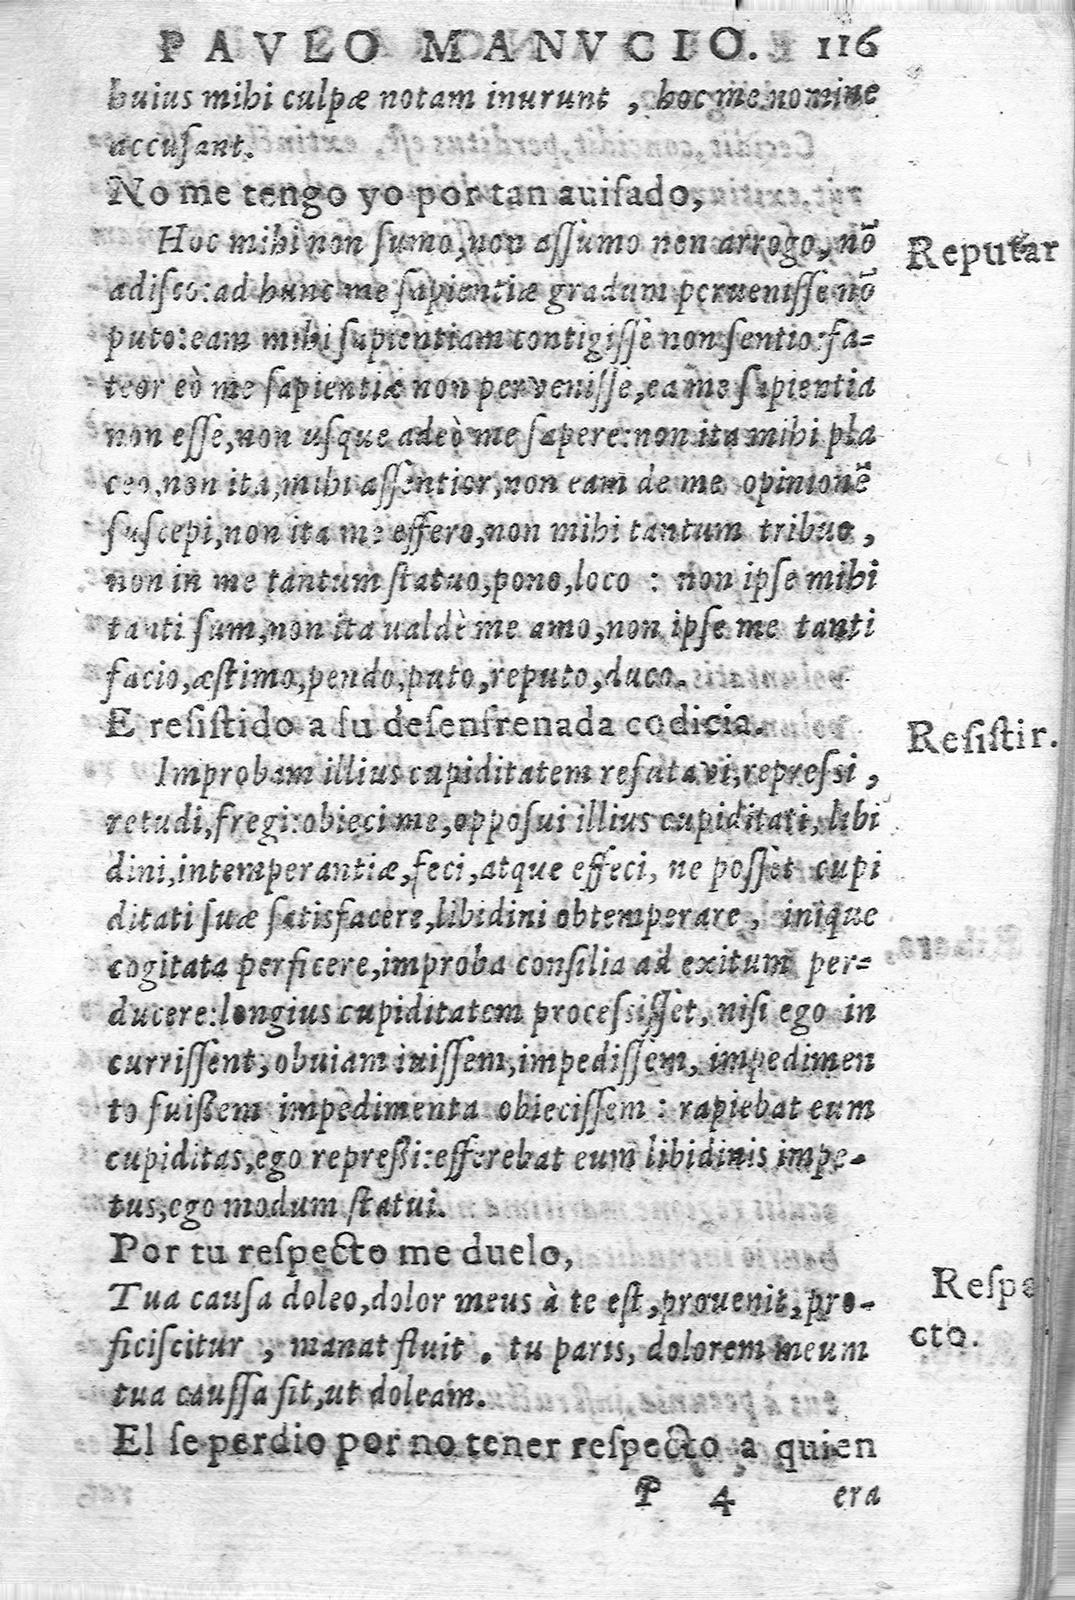 PAVLO MANVCIO. 116
huius mihi culpæ notam inurunt, hoc me nomine
accuſant.
No me tengo yo por tan auiſado,
Hoc mihi non ſumo, non aſſumo non arrogo, nõ
adiſco: ad hunc me ſapientiæ gradum perueniſſe nõ
puto: eam mihi ſapientiam contigiſſe non ſentio: fa=
teor eò me ſapientiæ non perveniſſe, ea me ſapientia
non eſſe, non uſque adeò me ſapere: non ita mihi pla
ceo, non ita, mihi aſſentior, non eam de me opinionẽ
ſuſcepi, non ita me effero, non mihi tantum tribuo,
non in me tantum ſtatuo, pono, loco : non ipſe mihi
tanti ſum, non ita ualdè me amo, non ipſe me tanti
facio, æſtimo, pendo, puto, reputo, duco.
Reputar
E reſiſtido a ſu deſenfrenada codicia.
Reſiſtir.
Improbam illius cupiditatem refutavi, repreſsi,
retudi, fregi: obieci me, oppoſui illius cupiditati, libi
dini, intemperantiæ, feci, atque effeci, ne poſſet cupi
ditati ſuæ ſatisfacere, libidini obtemperare, inique
cogitata perficere, improba conſilia ad exitum per=
ducere: longius cupiditatem proceſſiſſet, niſi ego in
curriſſent, obuiam iuiſſem, impediſſem, impedimen
to fuiſſem impedimenta obieciſſem : rapiebat eum
cupiditas, ego repreſſi: efferebat eum libidinis impe-
tus, ego modum ſtatui.
Por tu reſpecto me duelo,
Reſpe
cto.
Tua cauſa doleo, dolor meus à te eſt, prouenit, pro-
ficiſcitur, manat fluit. tu paris, dolorem meum
tua cauſſa fit, ut doleam.
El ſe perdio por no tener reſpecto a quien
P 4 era